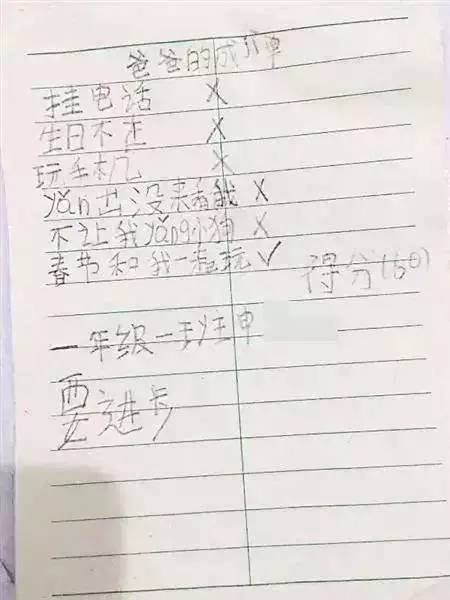 爸爸的成 单
挂电话 X
生日不 X
玩手机 X
yǎn出没来看我 X
不让我yǎng小狗 X
春节和我一起玩 ✓
得分(60)
一年级一班汪申
要进步